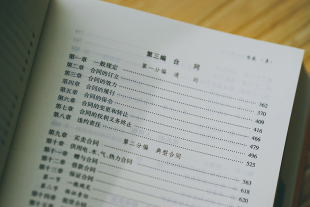 第三编　合　同
第一分编　通　则
第一章　一般规定 362
第二章　合同的订立 370
第三章　合同的效力 409
第四章　合同的履行 416
第五章　合同的保全 466
第六章　合同的变更和转让 479
第七章　合同的权利义务终止 496
第八章　违约责任 525
第二分编　典型合同
第九章　买卖合同 563
第十章　供用电、水、气、热力合同 618
第十一章　赠与合同 620
第十二章　借款合同
第十三章　保证合同
第一节　一般规定
第十四章　租赁合同